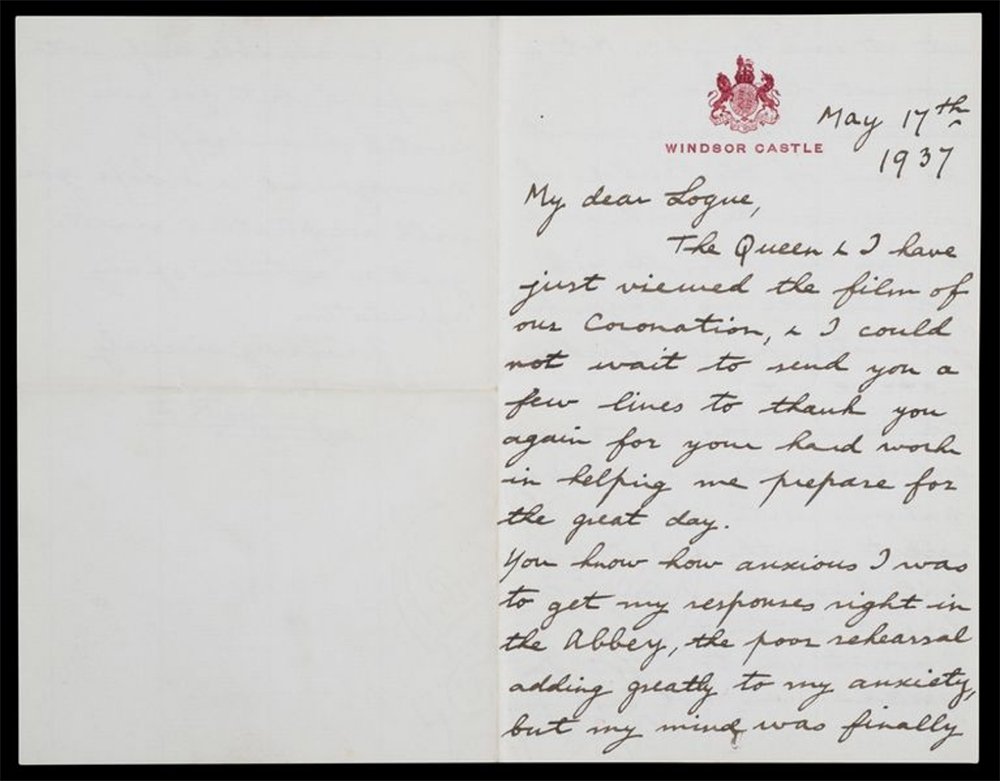 WINDSOR CASTLE
May 17th
1937
My dear Logue,
The Queen & I have
just viewed the film of
our Coronation, & I could
not wait to send you a
few lines to thank you
again for your hard work
in helping me prepare for
the great day.
You know how anxious I was
to get my responses right in
the Abbey, the poor rehearsal
adding greatly to my anxiety,
but my mind was finally